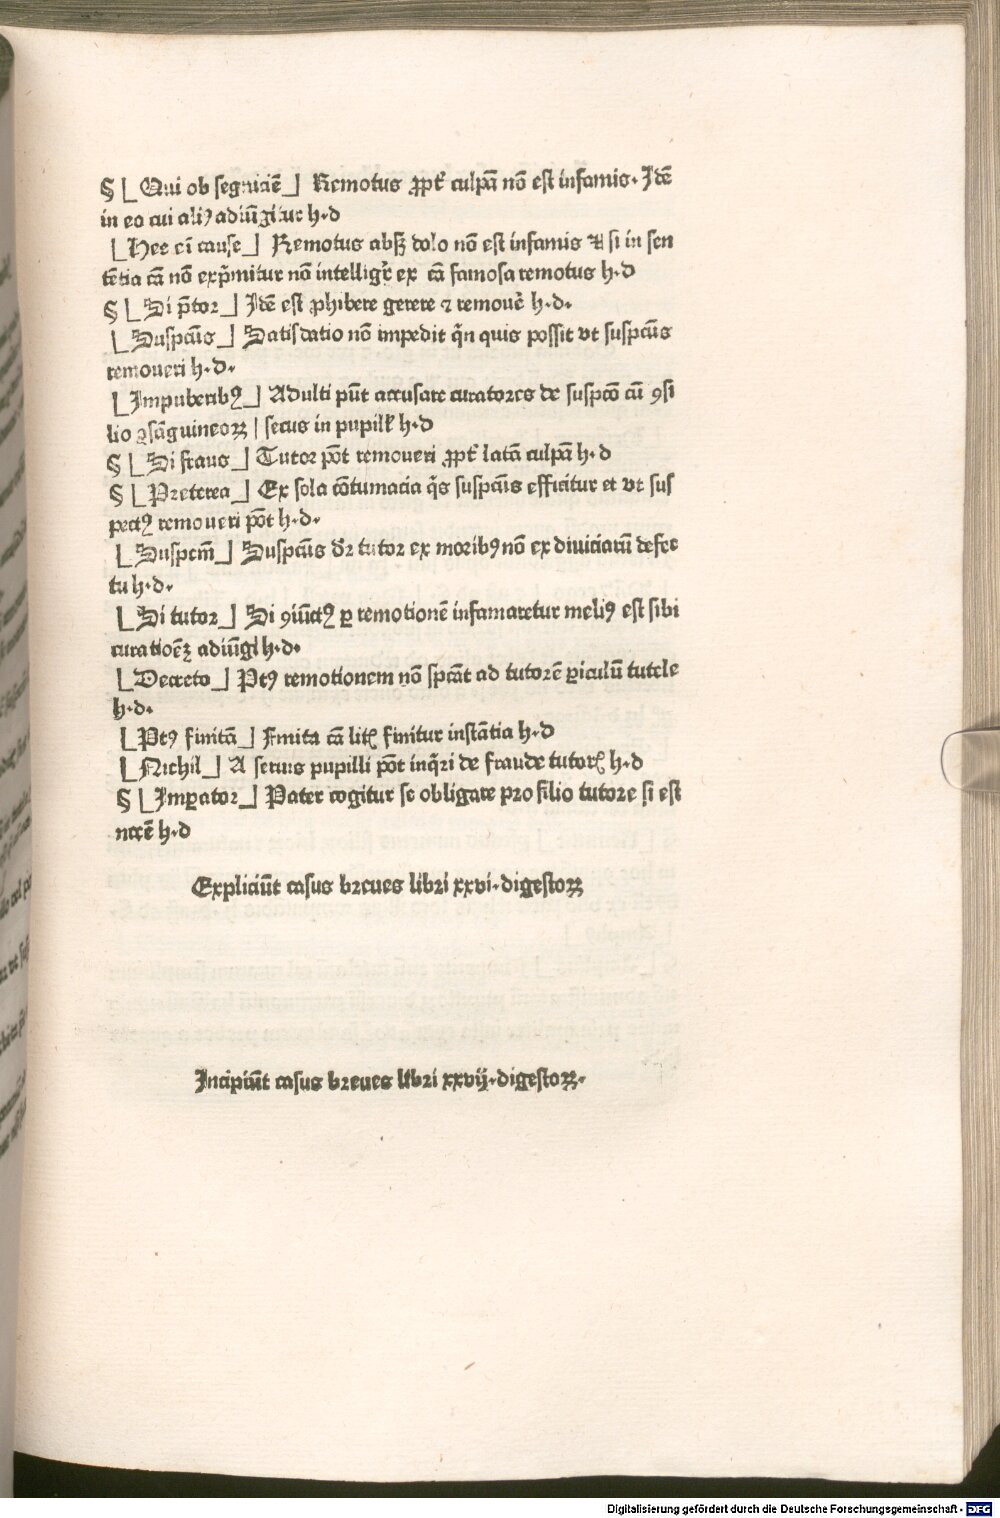 § ⌊Qui ob segniciē⌋ Remotus ꝓpt̄ culpā nō est infamis. Idē
in eo cui aliꝰ adiūgitur h.d
⌊Hee ei cause⌋ Remotus absqꝫ dolo nō est infamis Et si in sen
tētia cā nō exp̄mitur nō intelligr̄ ex cā famosa remotus h.d
§ ⌊Si p̄tor⌋ Idē est ꝓhibere gerere ⁊ remouē h.d.
⌊Suspcūs⌋ Satisdatio nō impedit q̄n quis possit vt suspcūs
remoueri h.d.
⌊Impuberibꝰ⌋ Adulti pn̄t accusare curatores de suspcō cū ꝯsi
lio ꝯsāguineoꝝ | secus in pupill̄ h.d
§ ⌊Si fraus⌋ Tutor pōt remoueri ꝓpt̄ latā culpā h.d
§ ⌊Preterea⌋ Ex sola cōtumacia q̄s suspcūs efficitur et vt sus
pectꝰ remoueri pōt h.d.
⌊Suspcm̄⌋ Suspcūs dr̄ tutor ex moribꝰ nō ex diuiciarū defec
tu h.d.
⌊Si tutor⌋ Si ꝯiūctꝰ ꝑ remotionē infamaretur meliꝰ est sibi
curatioēꝫ adiūgi h.d.
⌊Decreto⌋ Ptꝰ remotionem nō spcāt ad tutorē ꝑiculū tutele
h.d.
⌊Ptꝰ finitā⌋ Finita cā litꝭ finitur instātia h.d
⌊Nichil⌋ A seruis pupilli pōt inq̄ri de fraude tutorꝭ h.d
§ ⌊Imꝑator⌋ Pater cogitur se obligare pro filio tutore si est
nccē h.d
Expliciūt casus breues libri xxvi.digestoꝝ
Incipiūt casus breues libri xxvij.digestoꝝ.
Digitalisierung gefördert durch die Deutsche Forschungsgemeinschaft - DFG